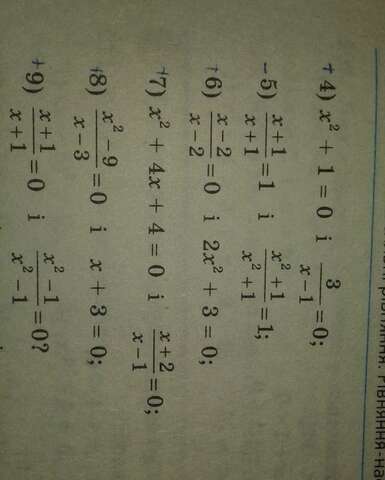 +4) x² + 1 = 0 і 3/(x−1) = 0;
−5) (x+1)/(x+1) = 1 і (x²+1)/(x²+1) = 1;
+6) (x−2)/(x−2) = 0 і 2x² + 3 = 0;
+7) x² + 4x + 4 = 0 і (x+2)/(x−1) = 0;
+8) (x²−9)/(x−3) = 0 і x + 3 = 0;
+9) (x+1)/(x+1) = 0 і (x²−1)/(x²−1) = 0?